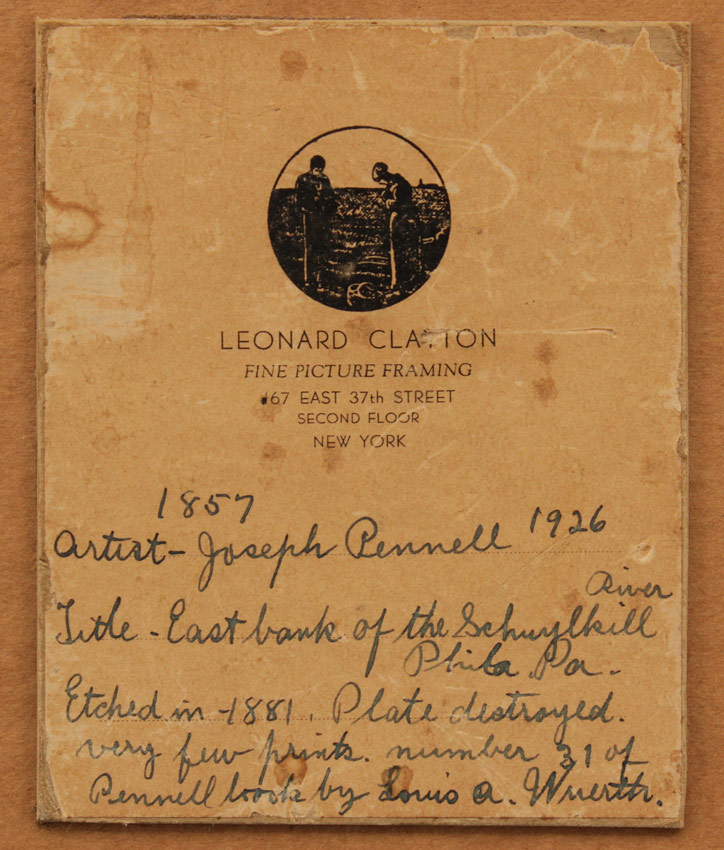 LEONARD CLAYTON
FINE PICTURE FRAMING
167 EAST 37th STREET
SECOND FLOOR
NEW YORK
1857 1926
Artist - Joseph Pennell
River
Title - East bank of the Schuylkill
Phila. Pa.
Etched in - 1881. Plate destroyed.
very few prints. number 31 of
Pennell book by Louis A. Wuerth.